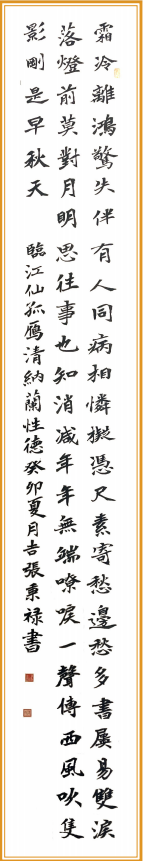 霜冷離鴻驚失伴有人同病相憐擬憑尺素寄愁邊愁多書屢易雙淚
落燈前莫對月明思往事也知消減年年無端嘹唳一聲傳西風吹隻
影剛是早秋天
臨江仙孤雁清納蘭性德癸卯夏月吉張秉祿書